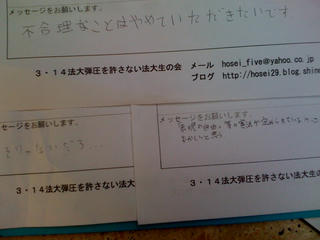 メッセージをお願いします。
不合理なことはやめていただきたいです
3・14法大弾圧を許さない法大生の会 メール hosei_five@yahoo.co.jp
ブログ http://hosei29.blog.shin
メッセージをお願いします。
そりゃないだろ…
3・14法大弾圧を許さない法大
メッセージをお願いします。
表現の自由、等の憲法で定められている
おかしいと思う
3・14法大弾圧を許さない法大生の